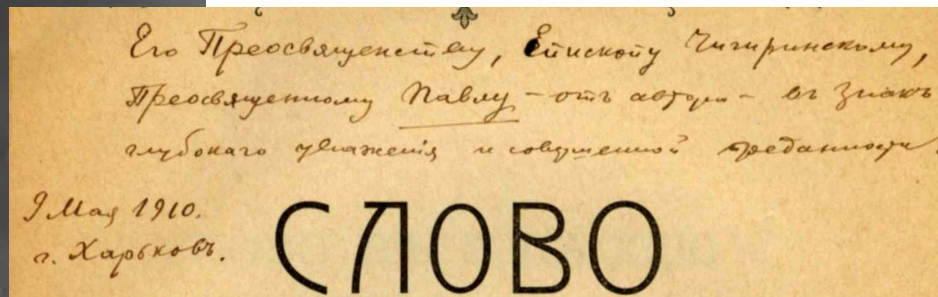 Его Преосвященству, Епископу Чигиринскому,
Преосвященному Павлу – отъ автора – въ знакъ
глубокаго уваженія и совершенной преданности.
9 Мая 1910.
г. Харьковъ.
СЛОВО